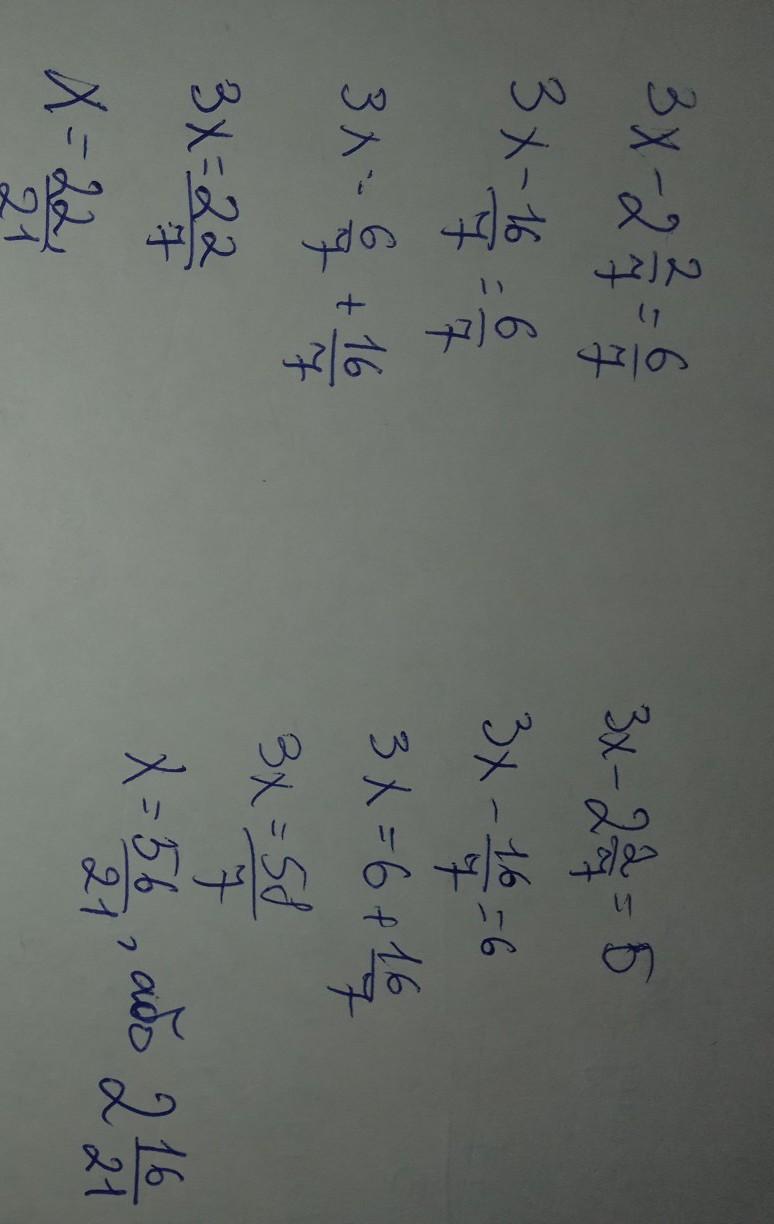 3x - 2 2/7 = 6/7
3x - 16/7 = 6/7
3x = 6/7 + 16/7
3x = 22/7
x = 22/21
3x - 2 2/7 = 6
3x - 16/7 = 6
3x = 6 + 16/7
3x = 58/7
x = 56/21, або 2 16/21